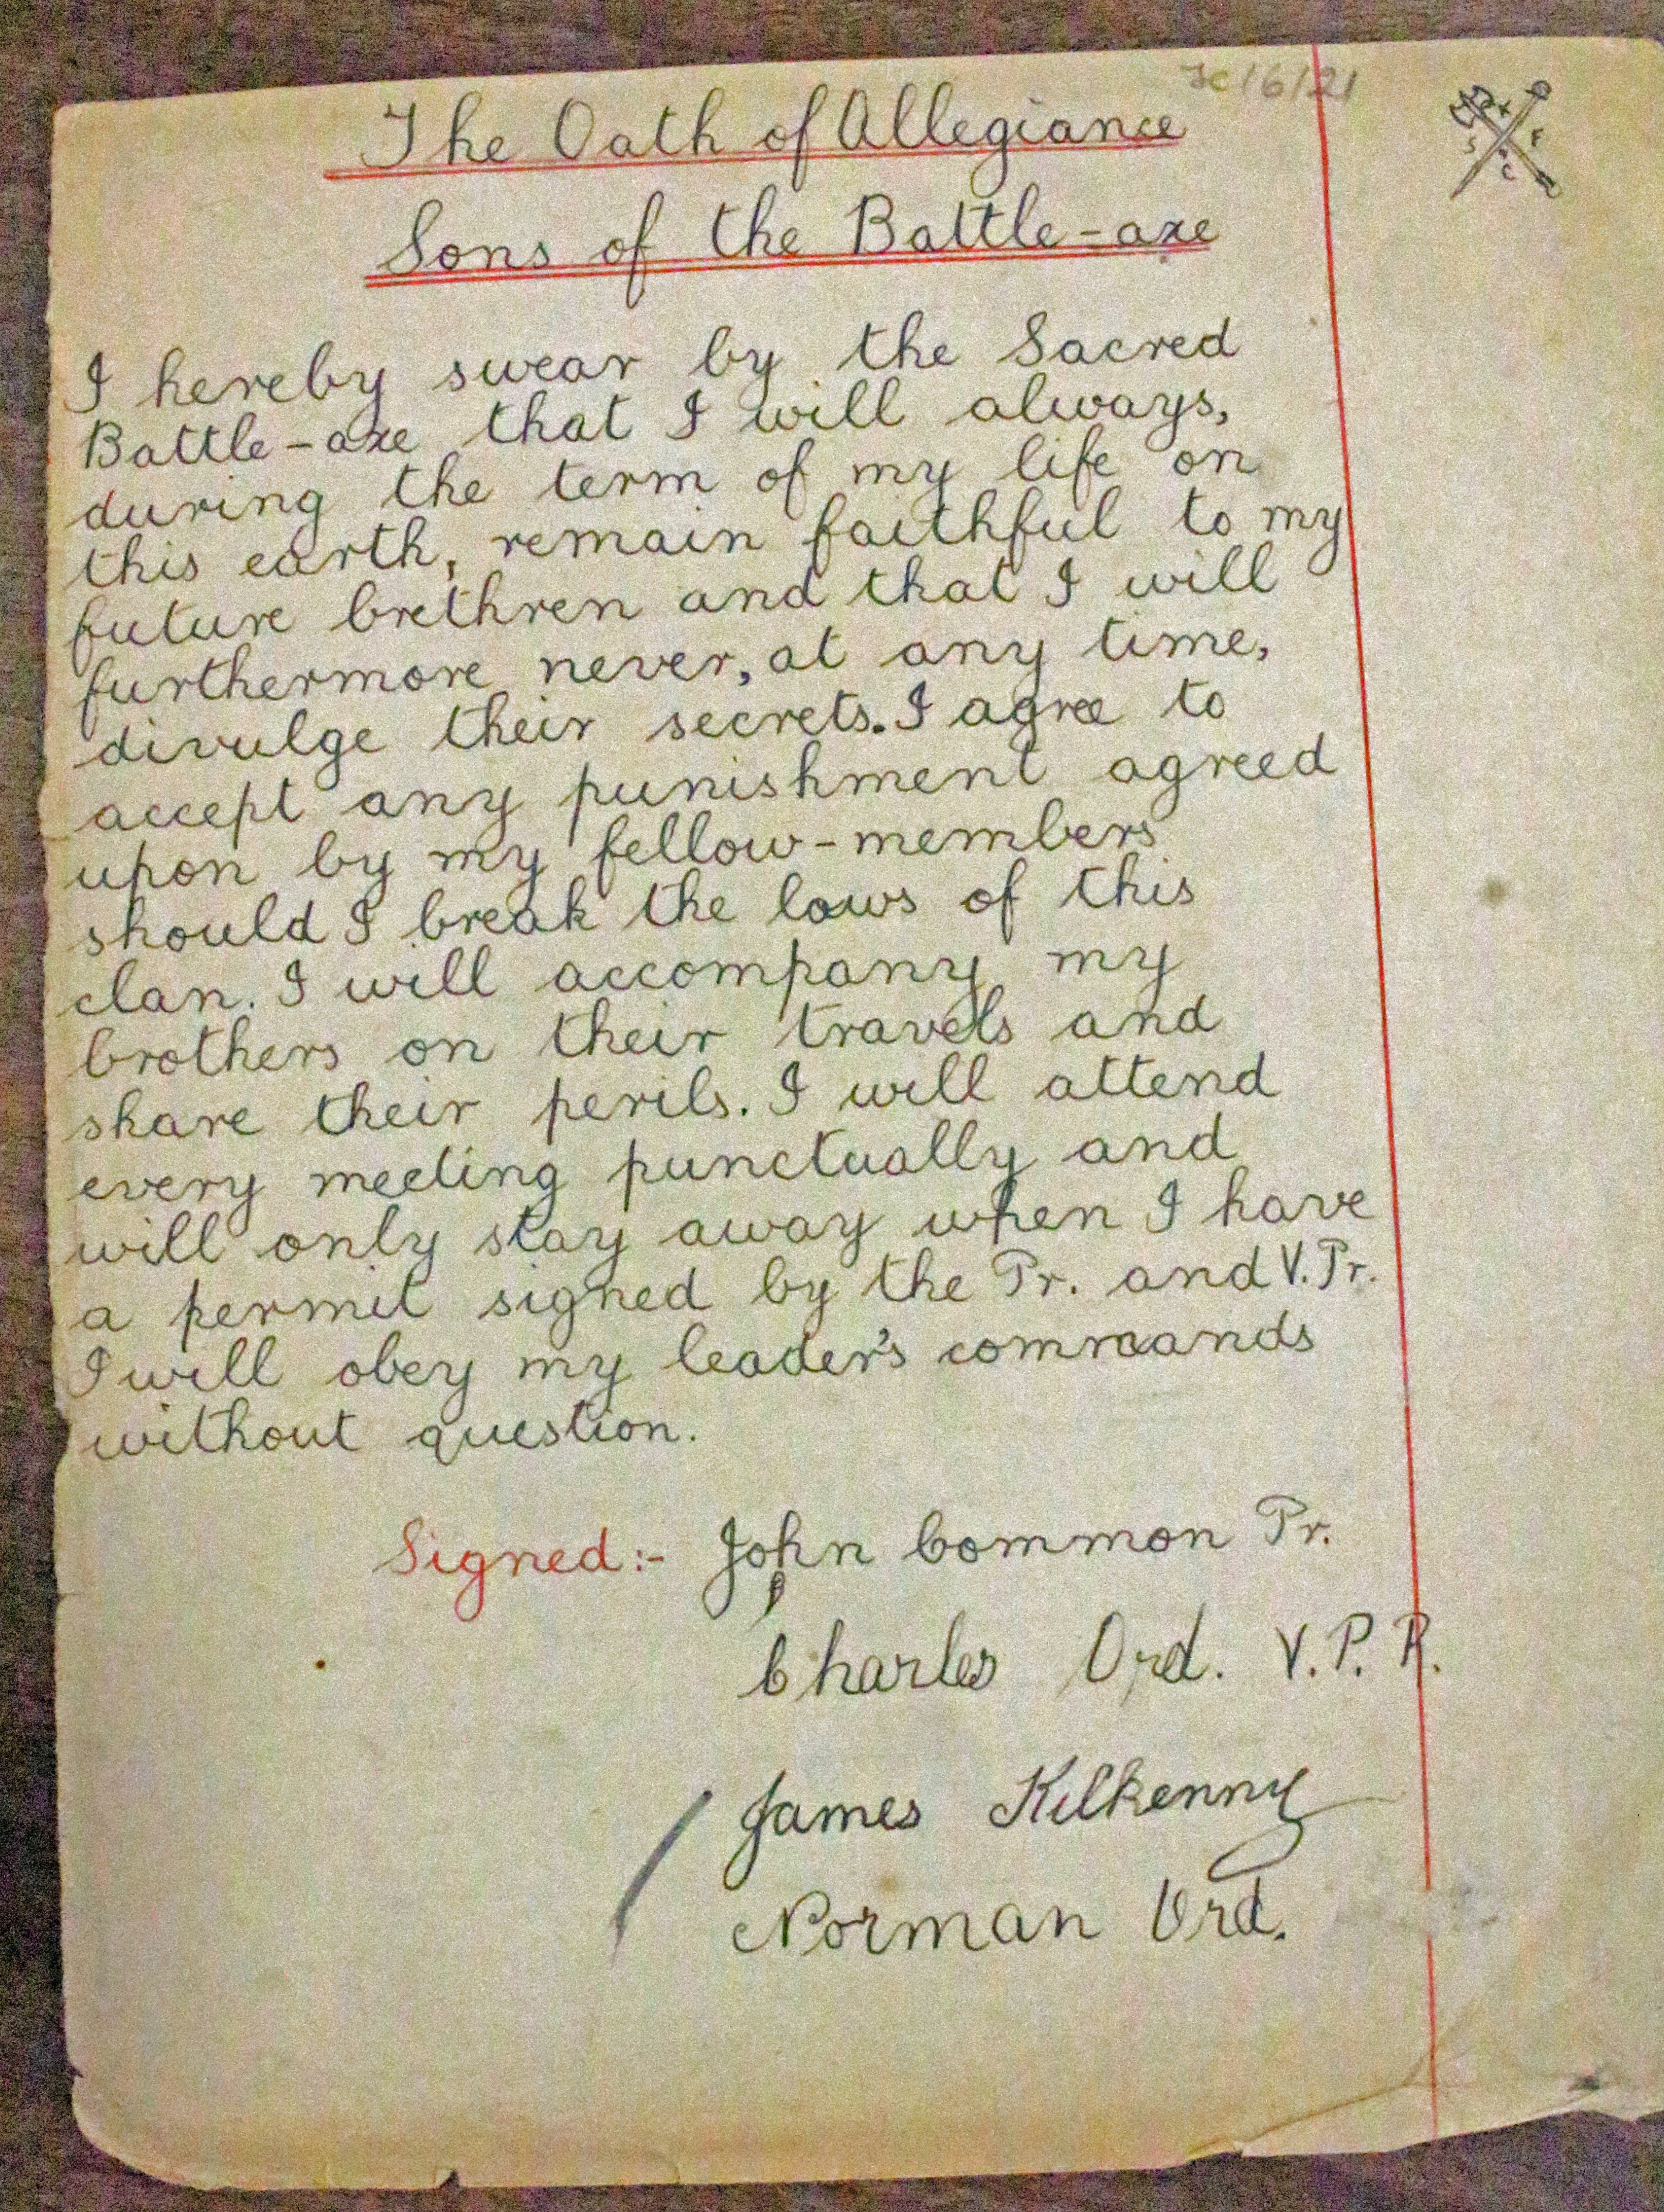 Jc/6/21
The Oath of Allegiance
Sons of the Battle-axe
I hereby swear by the Sacred
Battle-axe that I will always,
during the term of my life on
this earth, remain faithful to my
future brethren and that I will
furthermore never, at any time,
divulge their secrets. I agree to
accept any punishment agreed
upon by my fellow-members
should I break the laws of this
clan. I will accompany my
brothers on their travels and
share their perils. I will attend
every meeting punctually and
will only stay away when I have
a permit signed by the Pr. and V. Pr.
I will obey my leader's commands
without question.
Signed:- John Common Pr.
Charles Ord. V. P. R.
James Kilkenny
Norman Ord.